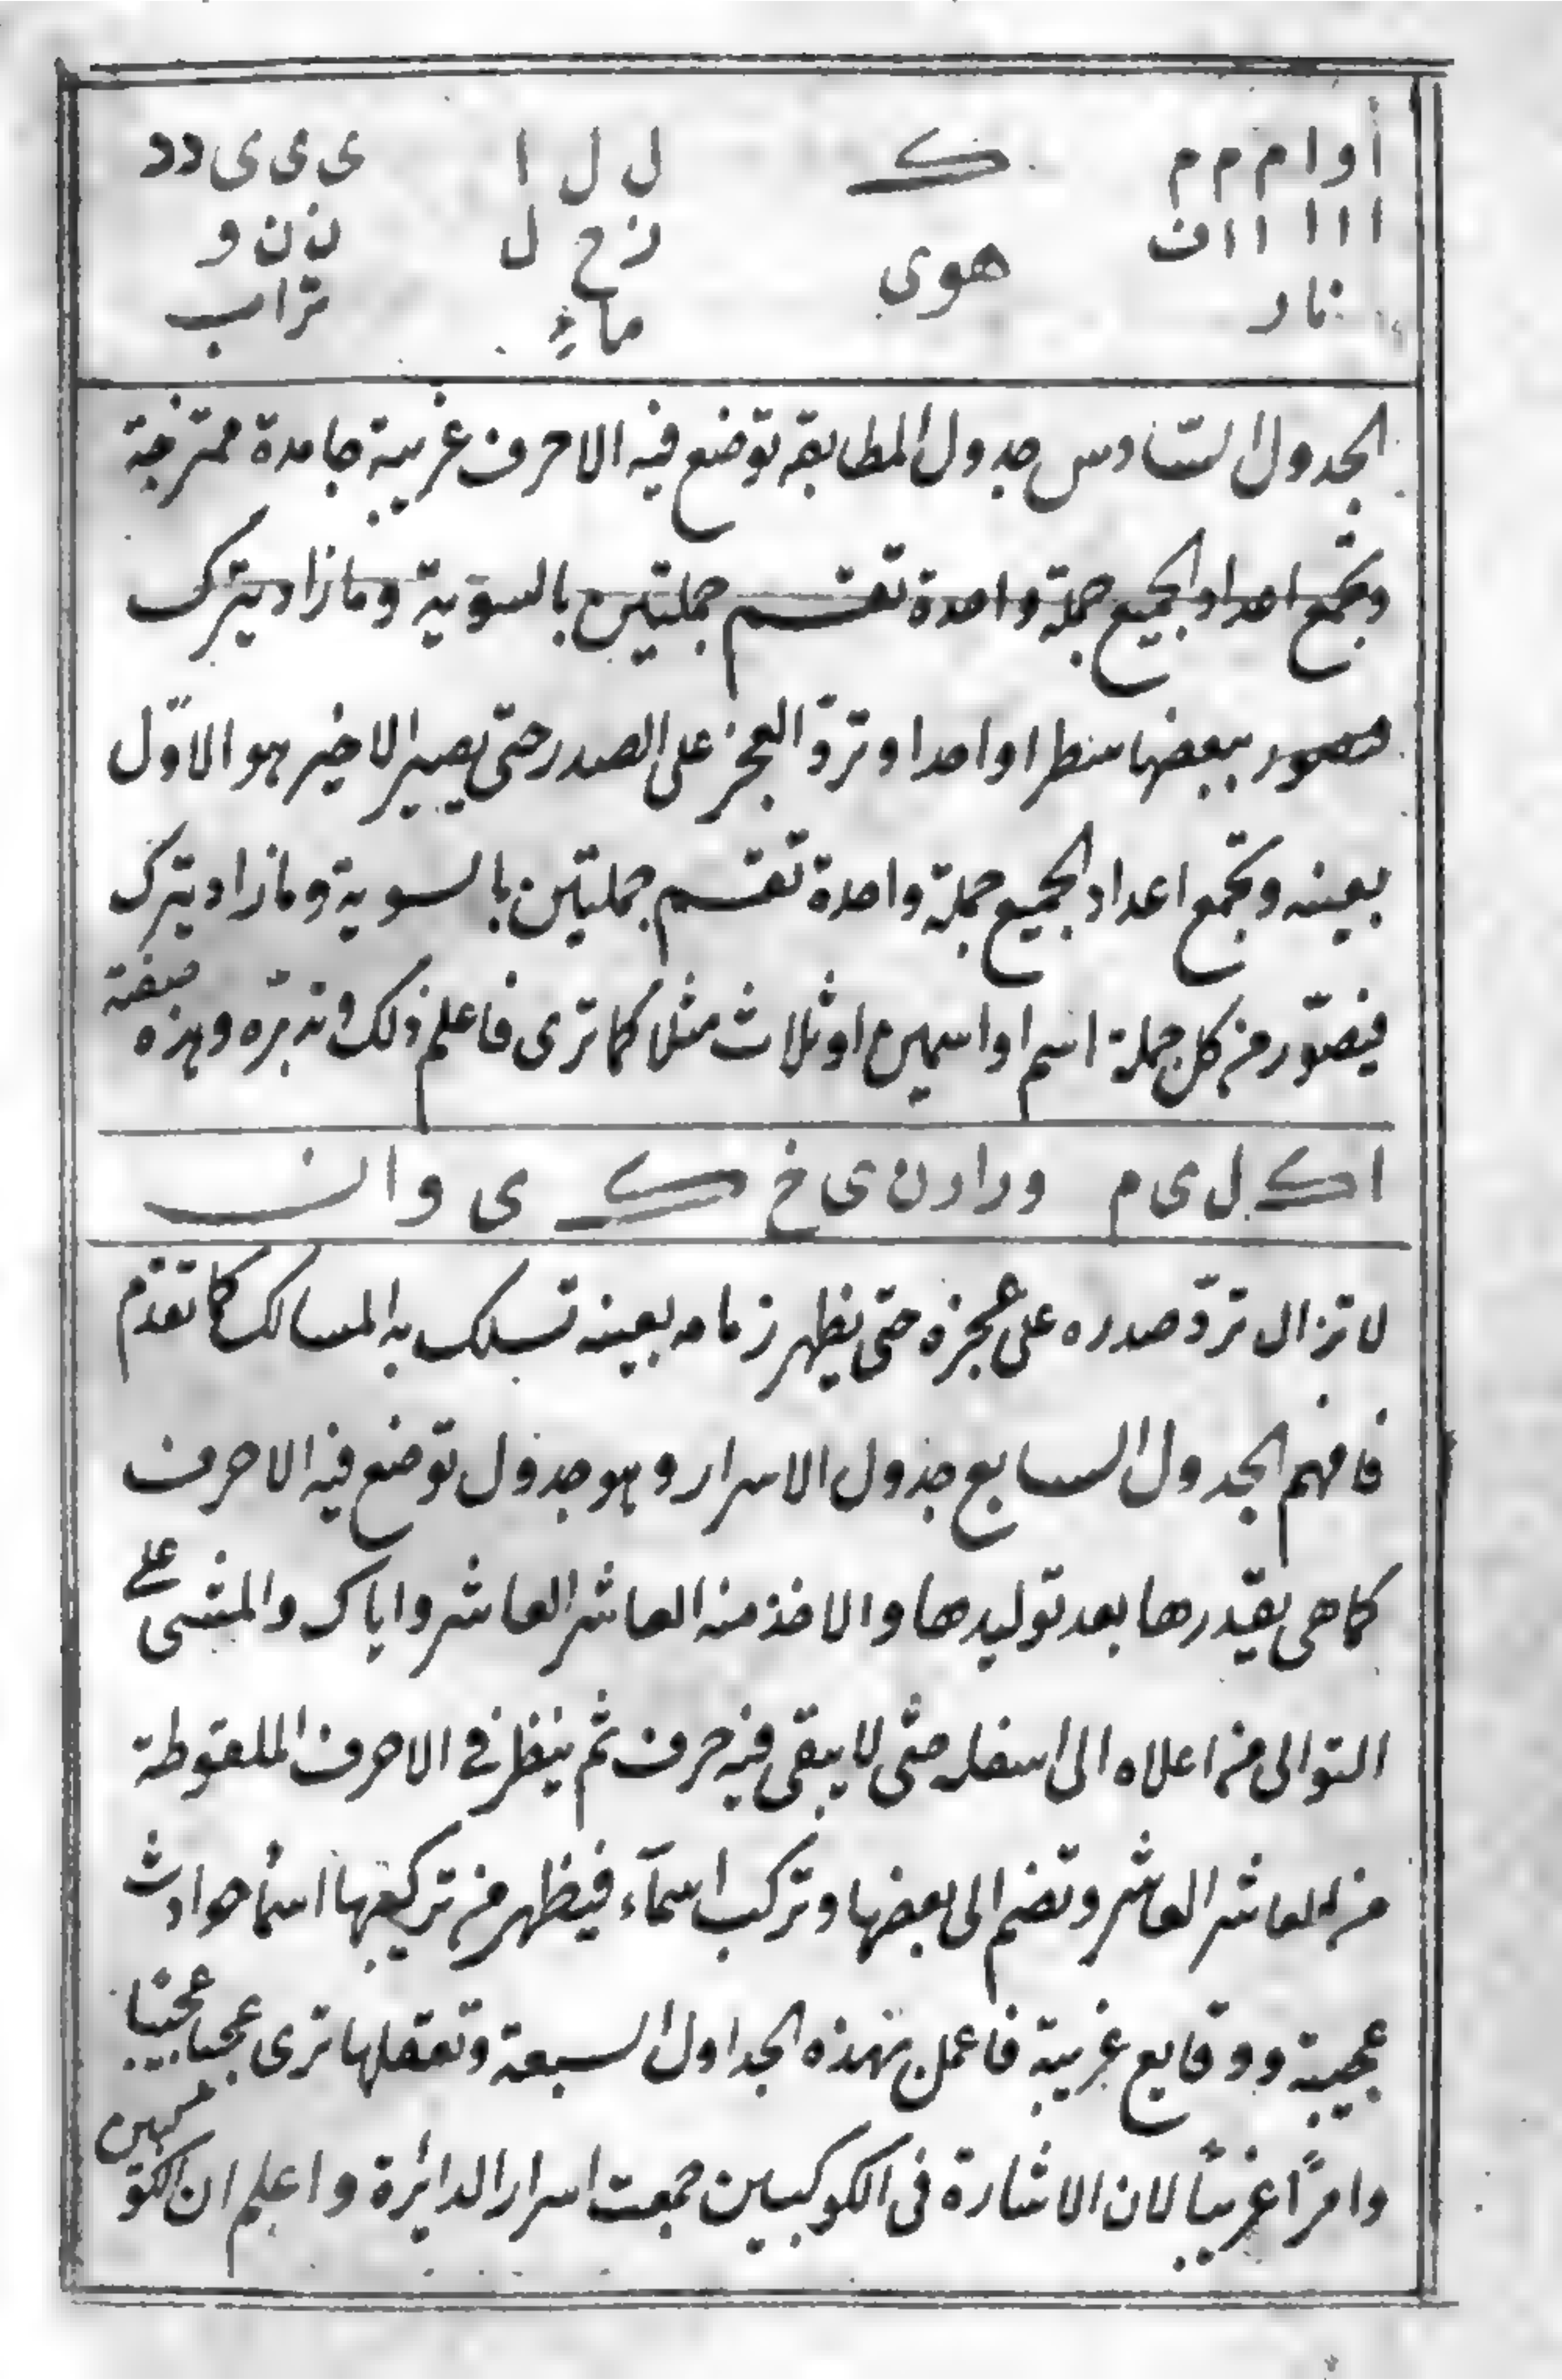 أ و ا م م م ك ل ل ا ى ى ى د د
ا ا ا ا ا ف هوى ن ح ل ن ن و
نار ماء تراب
الجدول السادس جدول المطابقة توضع فيه الاحرف غريبة جامدة ممتزجة
وتجمع اعداد الجميع جملة واحدة تقسم جملتين بالسوية ومازاد يترك
ببعضها سطرا واحدا وتردّ العجز على الصدر حتى يصير الاخير هو الاوّل
بعينه وتجمع اعداد الجميع جملة واحدة تقسم جملتين بالسوية ومازاد يترك
فيصوّر من كل جملة اسم او اسمين او ثلاث مثلا كما ترى فاعلم ذلك وتدبّره وهذه صفته
ا ك ل ى م و ر ا د ن ى خ ك ى و ا ن
لا تزال تردّ صدره على عجزه حتى يظهر زمامه بعينه تسلك به المسالك كما تقدّم
فافهم الجدول السابع جدول الاسرار وهو جدول توضع فيه الاحرف
كما هى بقدرها بعد توليدها والاخذ منه العاشر العاشر واياك والمشى على
التوالى من اعلاه الى اسفله حتى لا يبقى فيه حرف ثم ينظر فى الاحرف الملقوطة
من العاشر العاشر وتضم الى بعضها وتركب اسمآء فيظهر من تركيبها اسمأ حوادث
عجيبة ووقايع غريبة فاعمل بهذه الجداول السبعة وتعقلها ترى عجبا عجيبا
وامرًا غريبًا لان الاشارة فى الكوكبين جمعت اسرار الدايرة واعلم ان الكو